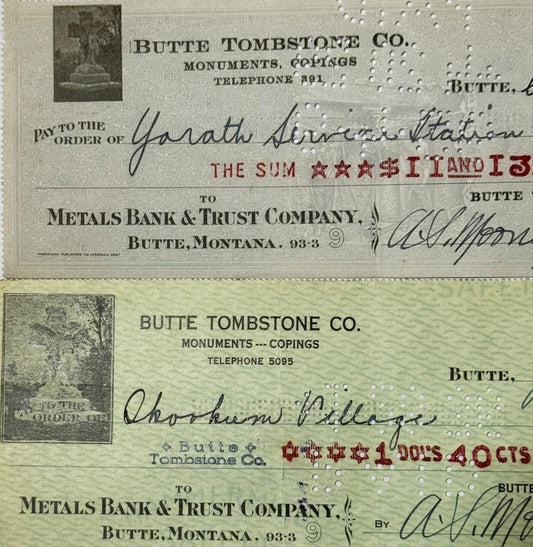 BUTTE TOMBSTONE CO.
MONUMENTS, COPINGS
TELEPHONE 391
BUTTE,
PAY TO THE
ORDER OF Yorath Service Station
THE SUM ★★★$11 AND 13
BUTTE
TO
METALS BANK & TRUST COMPANY,
BUTTE, MONTANA. 93-3 9
A. S. Moon
BUTTE TOMBSTONE CO.
MONUMENTS --- COPINGS
TELEPHONE 5095
BUTTE,
TO THE
ORDER OF
Skookum Village
Butte
Tombstone Co.
✡✡✡✡1 DOL'S 40 CTS
BUTTE
TO
METALS BANK & TRUST COMPANY,
BUTTE, MONTANA. 93-3 9
BY A. S. Moon